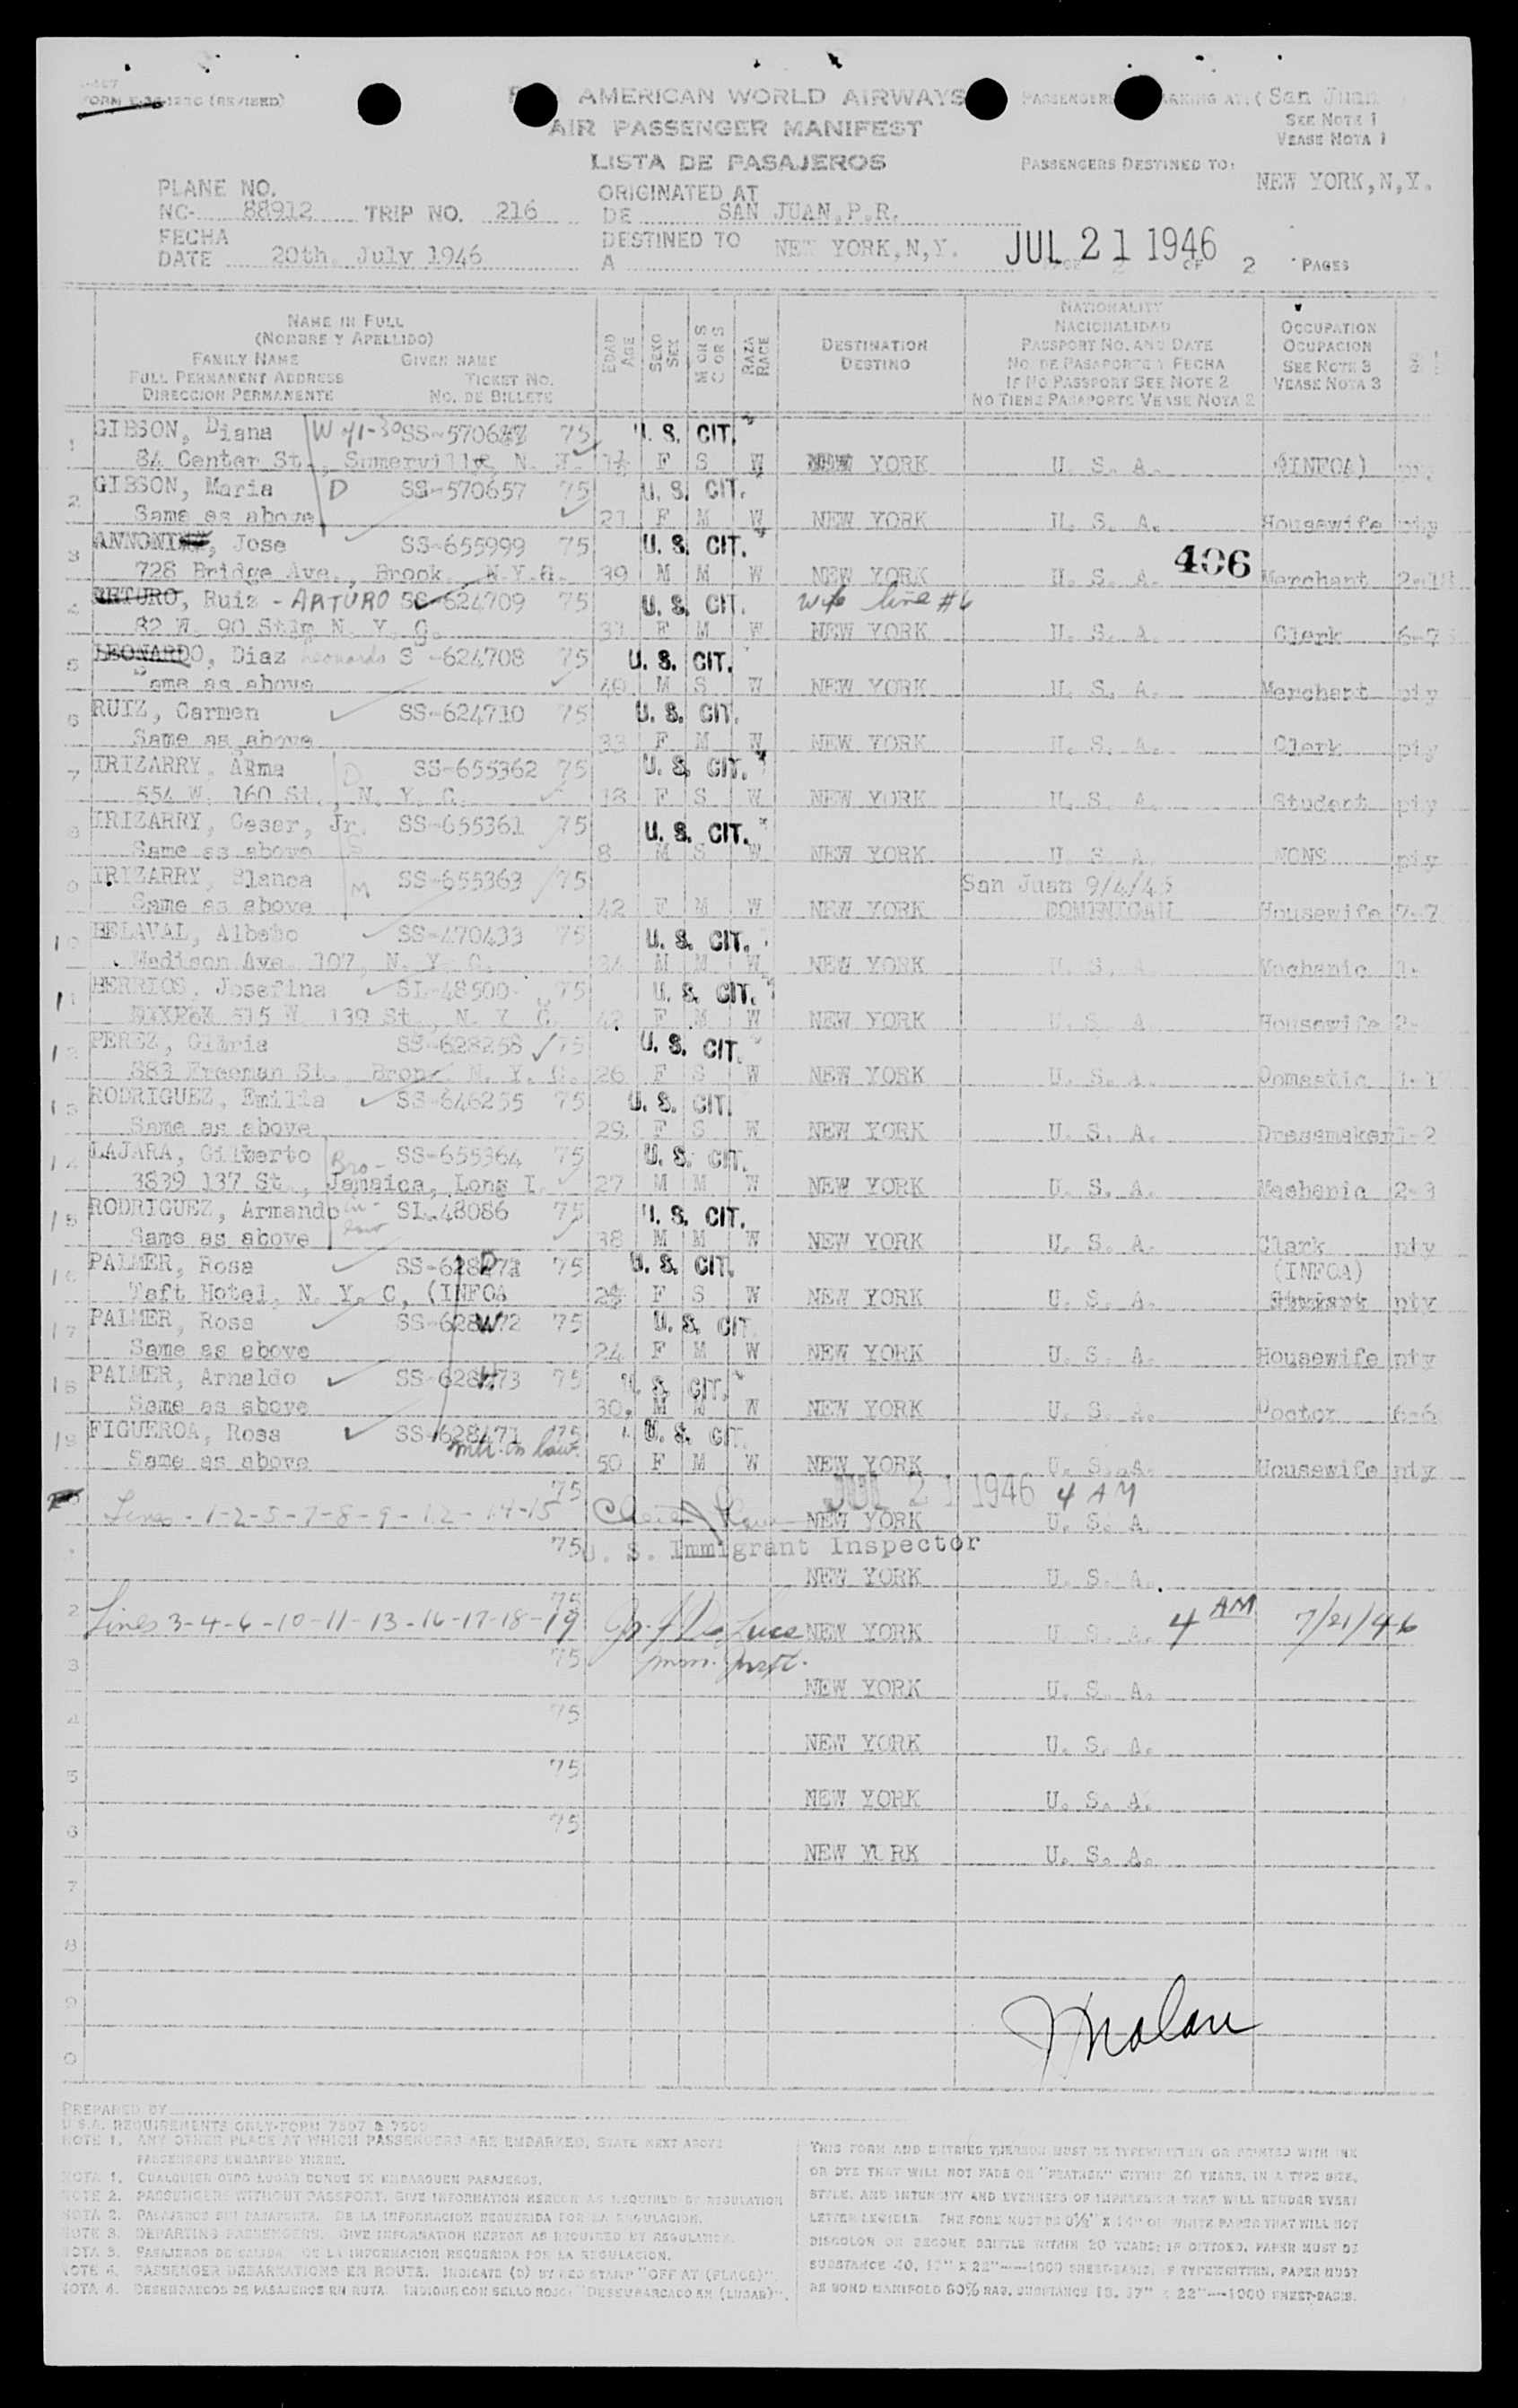 FORM (REVISED)
AMERICAN WORLD AIRWAYS
AIR PASSENGER MANIFEST
LISTA DE PASAJEROS
San Juan
SEE NOTE 1
VEASE NOTA 1
PASSENGERS DESTINED TO:
NEW YORK,N,Y.
PLANE NO.
NC- 88912 TRIP NO. 216
ORIGINATED AT
DE SAN JUAN,P.R.
FECHA
DATE 20th. July 1946
DESTINED TO
A NEW YORK,N,Y.
JUL 21 1946
OF 2 PAGES
NAME IN FULL
(NOMBRE Y APELLIDO)
FAMILY NAME GIVEN NAME
FULL PERMANENT ADDRESS TICKET NO.
DIRECCION PERMANENTE NO. DE BILLETE
EDAD AGE
SEXO SEX
M OR S
C OR S
RAZA RACE
DESTINATION
DESTINO
NATIONALITY
NACIONALIDAD
PASSPORT NO. AND DATE
NO. DE PASAPORTE Y FECHA
IF NO PASSPORT SEE NOTE 2
NO TIENE PASAPORTE VEASE NOTA 2
OCCUPATION
OCUPACION
SEE NOTE 3
VEASE NOTA 3
1 GIBSON, Diana 75 U. S. CIT.
84 Center St., Somerville, N. J. F S W NEW YORK U. S. A. (INFOA)
2 GIBSON, Maria D SS-570657 75 U. S. CIT.
Same as above 21 F M W NEW YORK U. S. A. Housewife pty
3 ANNONI, Jose SS-655999 75 U. S. CIT.
728 Bridge Ave., Brook. N.Y. 39 M M W NEW YORK U. S. A. 406 Merchant
4 ARTURO, Ruiz - ARTURO SS-624709 75 U. S. CIT. wife line #6
F M W NEW YORK U. S. A. Clerk 6-7
5 LEONARDO, Diaz Leonardo S -624708 75 U. S. CIT.
Same as above 40 M S W NEW YORK U. S. A. Merchant pty
6 RUIZ, Carmen SS-624710 75 U. S. CIT.
Same as above 33 F M W NEW YORK U. S. A. Clerk pty
7 IRIZARRY, Alma D SS-655362 75 U. S. CIT.
554 W. 160 St., N. Y. C. 18 F S W NEW YORK U. S. A. Student pty
8 IRIZARRY, Cesar, Jr. SS-655361 75 U. S. CIT.
Same as above 8 M S W NEW YORK U. S. A. NONE pty
9 IRIZARRY, Blanca M SS-655363 75 San Juan 9/4/45
Same as above 42 F M W NEW YORK DOMINICAN Housewife 7-7
10 BELAVAL, Albeto SS-470433 75 U. S. CIT.
Madison Ave. 107, N. Y. C. M M W NEW YORK U. S. A. Mechanic
11 BERRIOS, Josefina SL-48500 75 U. S. CIT.
515 W. 139 St., N. Y. C. 42 F M W NEW YORK U. S. A. Housewife
12 PEREZ, Gloria SS-628258 75 U. S. CIT.
883 Freeman St. Bronx N. Y. C. 26 F S W NEW YORK U. S. A. Domestic 1-1
13 RODRIGUEZ, Emilia SS-646255 75 U. S. CIT.
Same as above 29 F S W NEW YORK U. S. A. Dressmaker 1-2
14 LAJARA, Gilberto Bro- SS-655364 75 U. S. CIT.
3839 137 St., Jamaica, Long I. 27 M M W NEW YORK U. S. A. Mechanic 2-3
15 RODRIGUEZ, Armando in- law SL-48086 75 U. S. CIT.
Same as above 38 M M W NEW YORK U. S. A. Clark pty
16 PALMER, Rosa D 75 U. S. CIT. (INFOA)
Taft Hotel, N. Y. C, (INFOA F S W NEW YORK U. S. A. pty
17 PALMER, Rosa W SS-628472 75 U. S. CIT.
Same as above 24 F M W NEW YORK U. S. A. Housewife pty
18 PALMER, Arnaldo H SS-628473 75 U. S. CIT.
Same as above 30 M M W NEW YORK U. S. A. Doctor 6-6
19 FIGUEROA, Rosa SS-628471 75 U. S. CIT.
Same as above mtr. in law 50 F M W NEW YORK U. S. A. Housewife pty
75 JUL 21 1946 4 AM
Lines - 1-2-5-7-8-9-12-14-15 NEW YORK U. S. A.
75 U. S. Immigrant Inspector
NEW YORK U. S. A.
2 75
Lines 3-4-6-10-11-13-16-17-18-19 De Luca NEW YORK U. S. A. 4 AM 7/21/46
3 75 Imm. Inspt.
NEW YORK U. S. A.
4 75
NEW YORK U. S. A.
5 75
NEW YORK U. S. A.
6 75
NEW YORK U. S. A.
7
8
9
0
PREPARED BY
U.S.A. REQUIREMENTS ONLY-FORM 7507 &
NOTE 1. ANY OTHER PLACE AT WHICH PASSENGERS ARE EMBARKED, STATE NEXT ABOVE
PASSENGERS EMBARKED THERE.
NOTA 1. CUALQUIER OTRO LUGAR DONDE SE EMBARQUEN PASAJEROS.
NOTE 2. PASSENGERS WITHOUT PASSPORT. GIVE INFORMATION HEREON AS REQUIRED BY REGULATION
NOTA 2. PASAJEROS SIN PASAPORTE. DE LA INFORMACION REQUERIDA POR LA REGULACION.
NOTE 3. DEPARTING PASSENGERS. GIVE INFORMATION HEREON AS REQUIRED BY REGULATION.
NOTA 3. PASAJEROS DE SALIDA. DE LA INFORMACION REQUERIDA POR LA REGULACION.
NOTE 4. PASSENGER DEBARKATIONS EN ROUTE. INDICATE (D) BY RED STAMP "OFF AT (PLACE)".
NOTA 4. DESEMBARCOS DE PASAJEROS EN RUTA. INDIQUE CON SELLO ROJO: "DESEMBARCADO EN (LUGAR)".
THIS FORM AND ENTRIES THEREON MUST BE TYPEWRITTEN OR PRINTED WITH INK
OR DYE THAT WILL NOT FADE OR "FEATHER" WITHIN 20 YEARS, IN A TYPE SIZE,
STYLE, AND INTENSITY AND EVENNESS OF IMPRESSION THAT WILL RENDER EVERY
LETTER LEGIBLE. THE FORM MUST BE 8½" X 14" ON WHITE PAPER THAT WILL NOT
DISCOLOR OR BECOME BRITTLE WITHIN 20 YEARS; IF DITTOED, PAPER MUST BE
SUBSTANCE 40, 17" X 22"—1000 SHEET-BASIS; IF TYPEWRITTEN, PAPER MUST
BE BOND MANIFOLD 50% RAG, SUBSTANCE 18, 17" X 22"—1000 SHEET-BASIS.